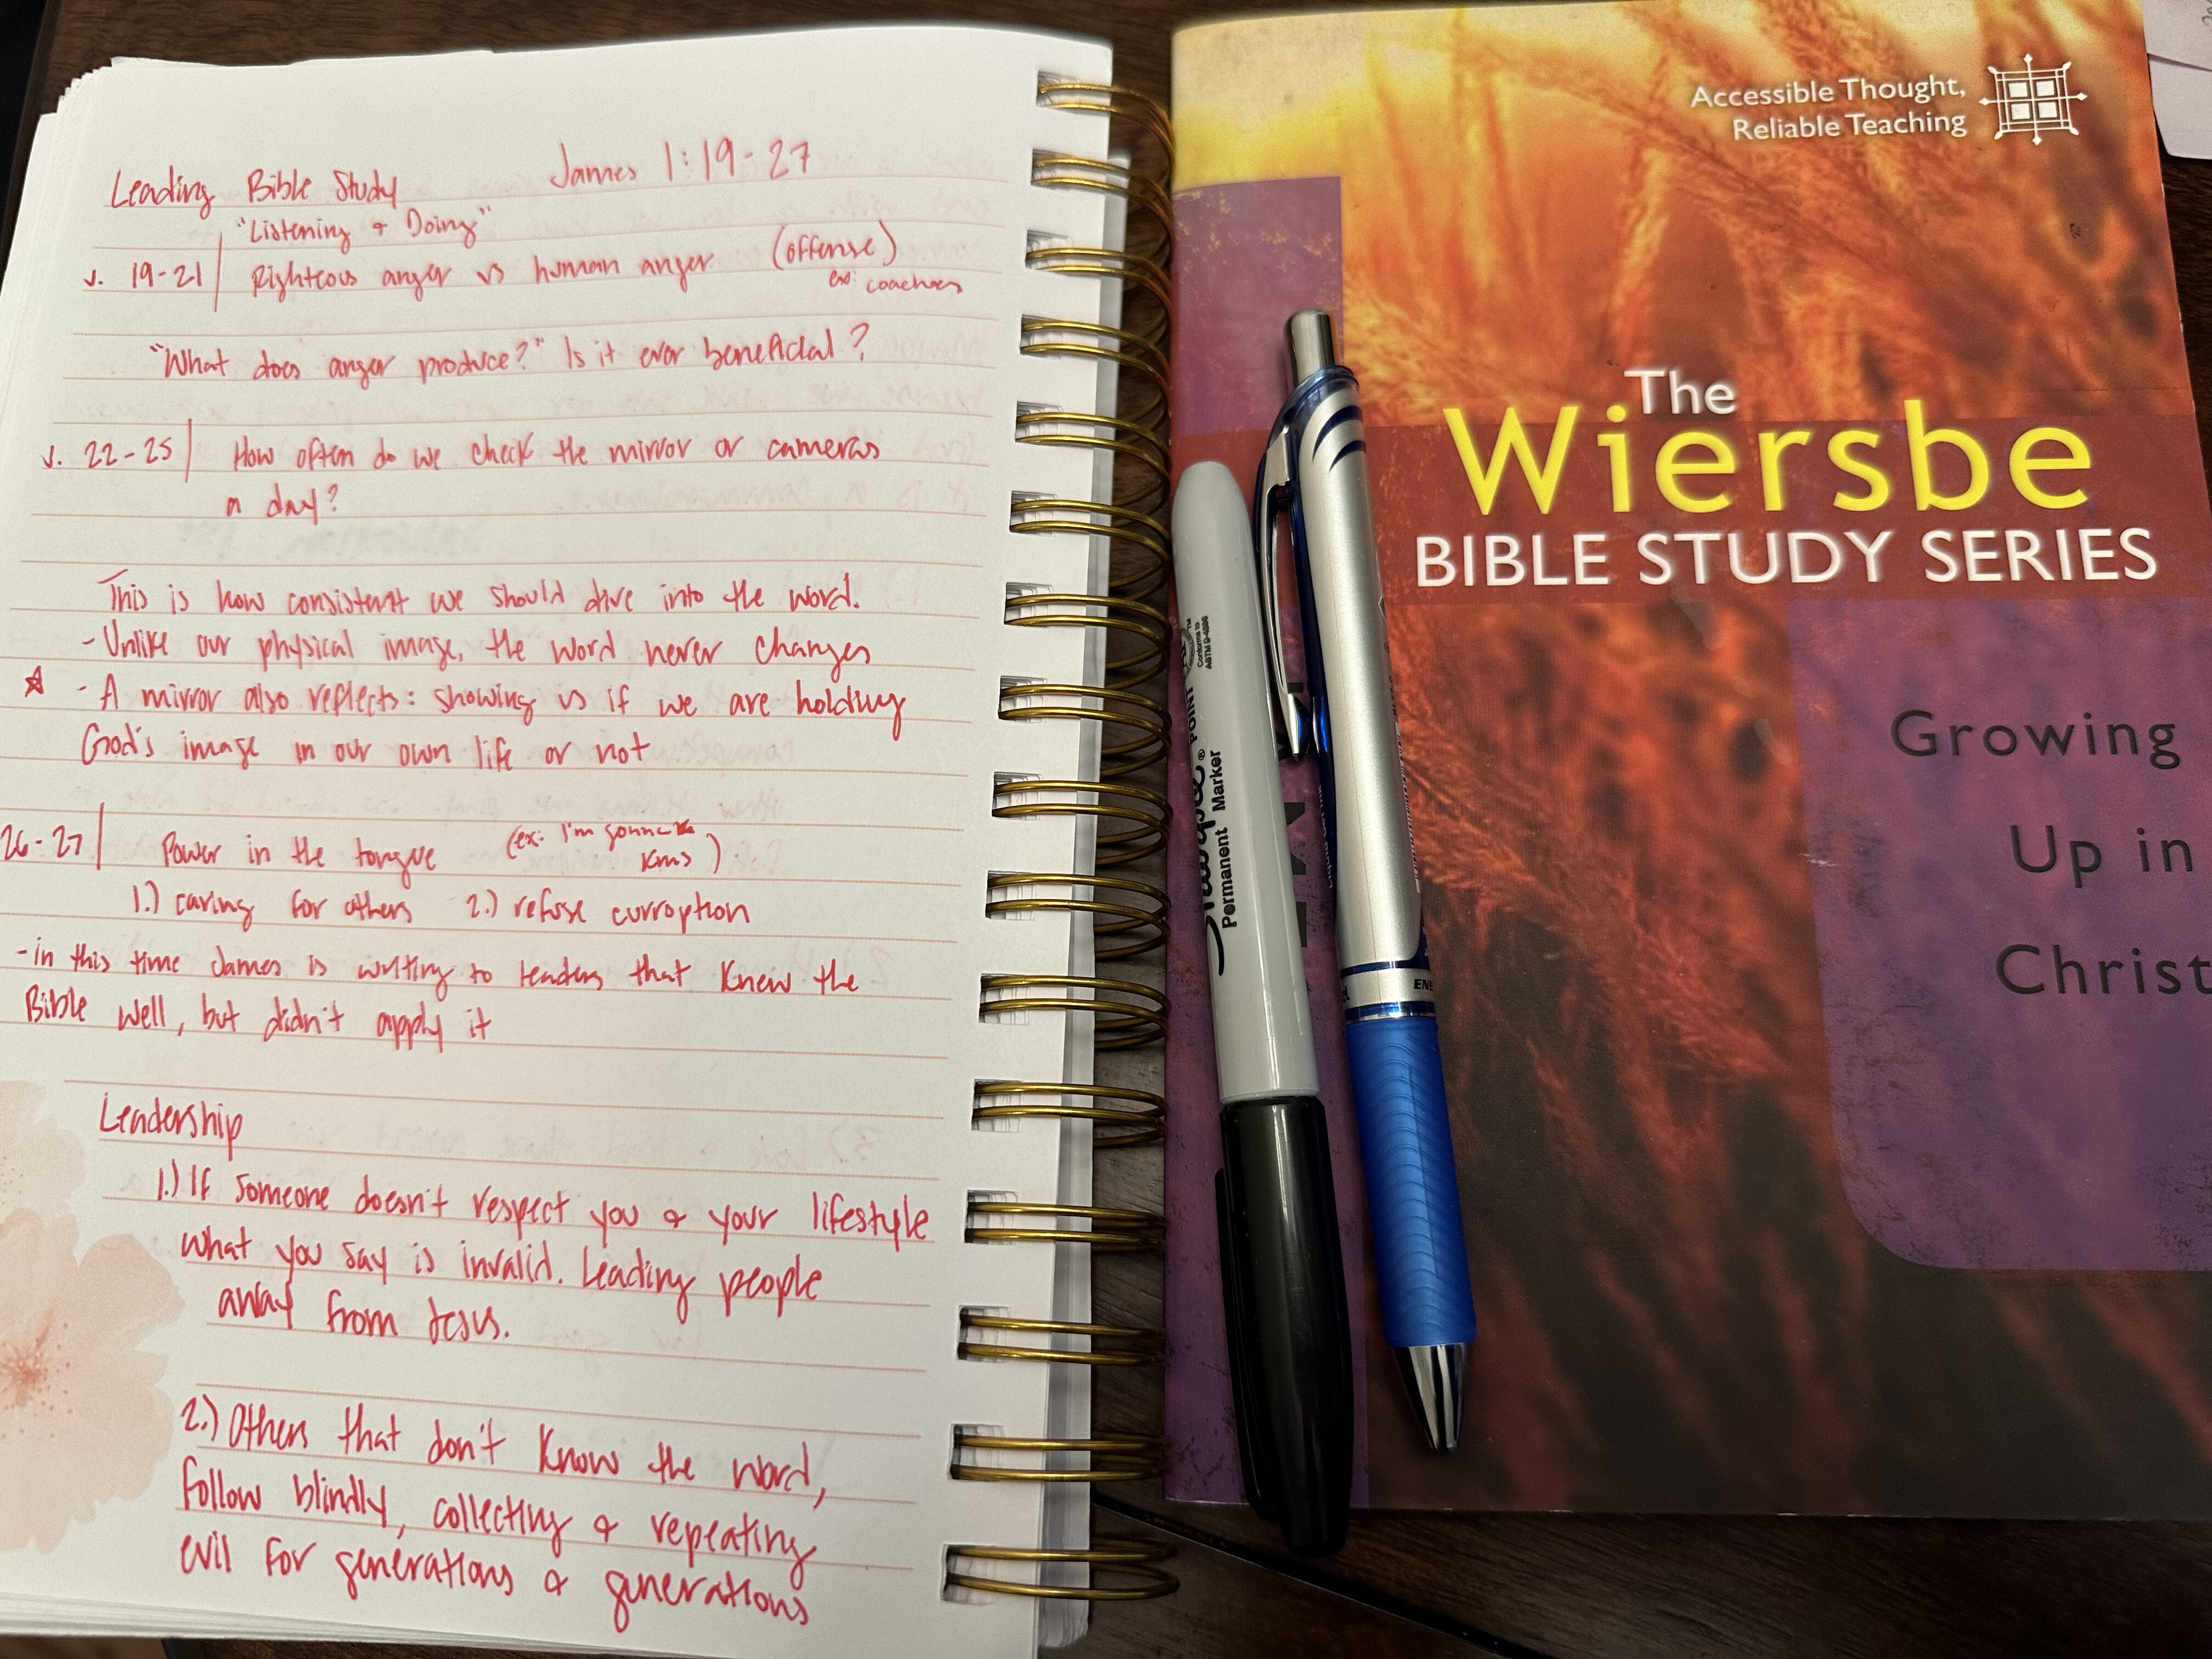 Leading Bible Study James 1:19-27
"Listening & Doing"
v. 19-21 Righteous anger vs human anger (offense)
ex: coaches
"What does anger produce?" Is it ever beneficial?
v. 22-25 How often do we check the mirror or cameras
a day?
This is how consistent we should dive into the word.
- Unlike our physical image, the word never changes
☆ - A mirror also reflects: showing us if we are holding
God's image in our own life or not
26-27 Power in the tongue (ex: I'm gonna
kms)
1.) caring for others 2.) refuse curroption
- in this time James is writing to leaders that knew the
Bible well, but didn't apply it
Leadership
1.) If someone doesn't respect you & your lifestyle
what you say is invalid. Leading people
away from Jesus.
2.) Others that don't know the word,
follow blindly, collecting & repeating
evil for generations & generations
Sharpie® POINT
Permanent Marker
Conforms to
ASTM D-4236
ENE
Accessible Thought,
Reliable Teaching
The
Wiersbe
BIBLE STUDY SERIES
Growing
Up in
Christ